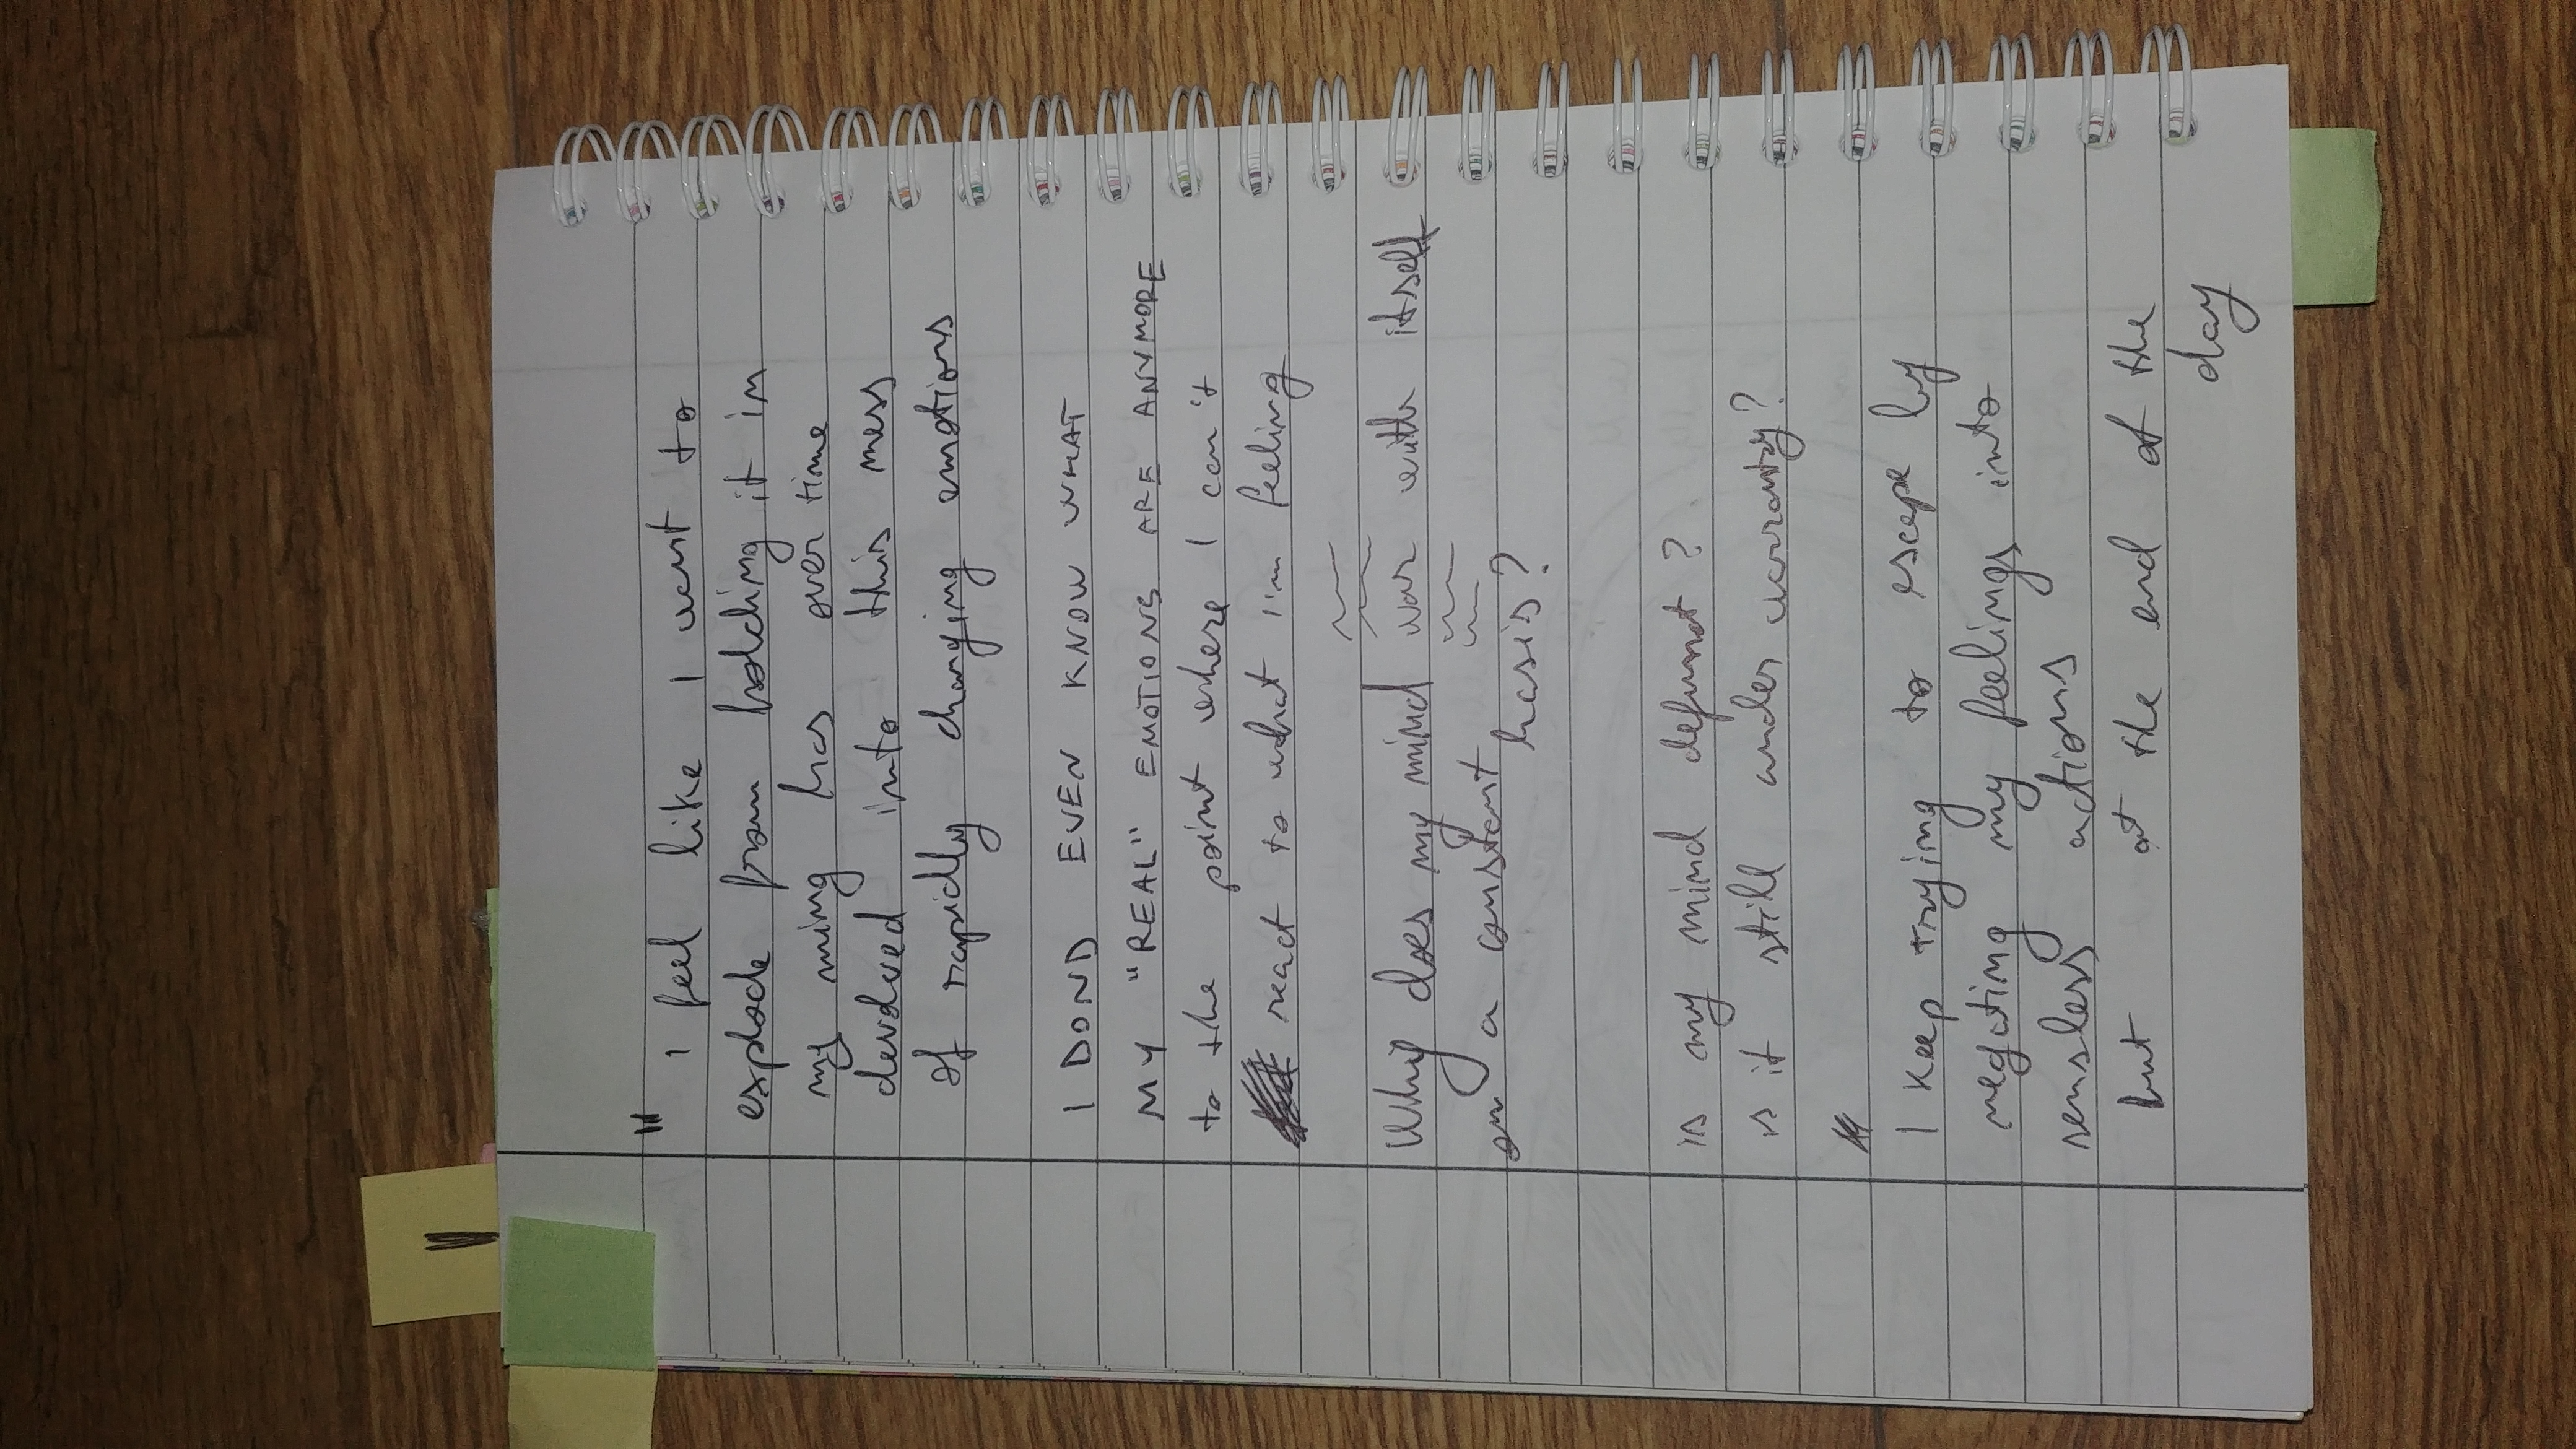 " I feel like I want to
explode from holding it in
my ming has over time
devolved into this mess
of rapidly changing emotions
I DOND EVEN KNOW WHAT
MY "REAL" EMOTIONS ARE ANYMORE
to the point where I can't
react to what I'm feeling
Why does my mind war with itself
on a constant
basis?
is my mind defunct?
is it still under warranty?
"
I keep trying to escape by
negating my feelings into
sensless actions
but at the end of the
day